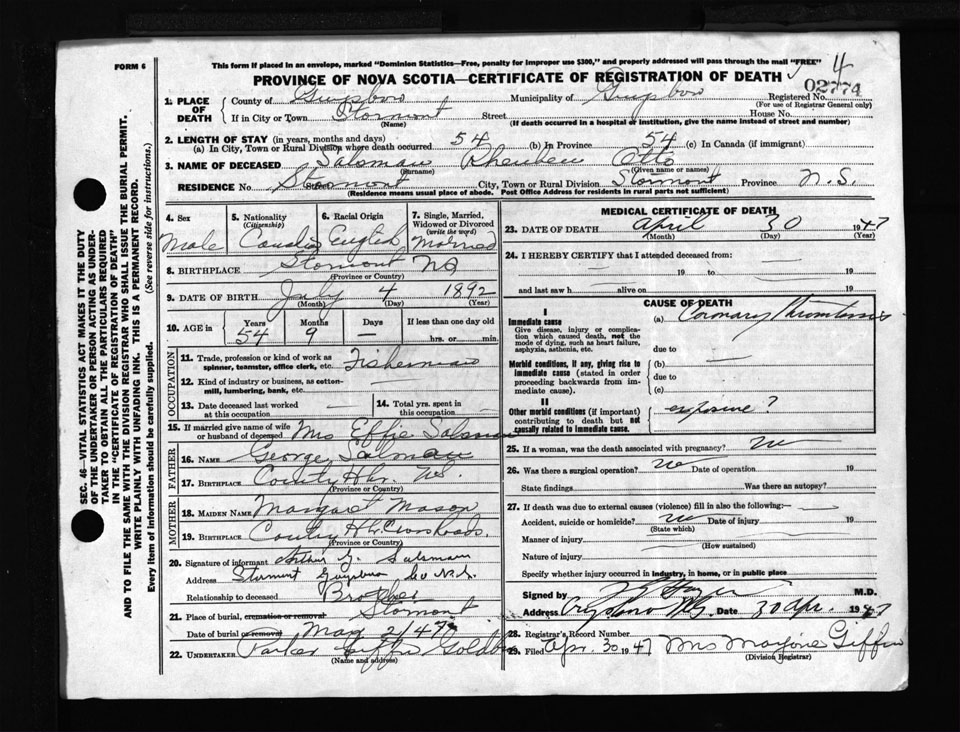 4
FORM 6
This form if placed in an envelope, marked "Dominion Statistics—Free, penalty for improper use $300," and properly addressed will pass through the mail "FREE"
PROVINCE OF NOVA SCOTIA—CERTIFICATE OF REGISTRATION OF DEATH
02774
SEC. 46—VITAL STATISTICS ACT MAKES IT THE DUTY
OF THE UNDERTAKER OR PERSON ACTING AS UNDER-
TAKER TO OBTAIN ALL THE PARTICULARS REQUIRED
IN THE "CERTIFICATE OF REGISTRATION OF DEATH"
AND TO FILE THE SAME WITH THE DIVISION REGISTRAR WHO SHALL ISSUE THE BURIAL PERMIT.
WRITE PLAINLY WITH UNFADING INK. THIS IS A PERMANENT RECORD.
Every item of information should be carefully supplied. (See reverse side for instructions.)
1. PLACE OF DEATH
County of Guysboro Municipality of Guysboro Registered No.
(For use of Registrar General only)
If in City or Town Stormont Street House No.
(Name) (If death occurred in a hospital or institution, give the name instead of street and number)
2. LENGTH OF STAY (in years, months and days)
(a) In City, Town or Rural Division where death occurred 54 (b) In Province 54 (c) In Canada (if immigrant)
3. NAME OF DECEASED Salsman Rheuben Otto
(Surname) (Given name or names)
RESIDENCE No. Stormont Street City, Town or Rural Division Stormont Province N.S.
(Residence means usual place of abode. Post Office Address for residents in rural parts not sufficient)
4. Sex
Male
5. Nationality
(Citizenship)
6. Racial Origin
English
7. Single, Married, Widowed or Divorced
(write the word)
Married
8. BIRTHPLACE Stormont NS
(Province or Country)
9. DATE OF BIRTH July 4 1892
(Month) (Day) (Year)
10. AGE in Years Months Days If less than one day old
54 9 — hrs. or min.
OCCUPATION
11. Trade, profession or kind of work as Fisherman
spinner, teamster, office clerk, etc.
12. Kind of industry or business, as cotton-
mill, lumbering, bank, etc. —
13. Date deceased last worked
at this occupation —
14. Total yrs. spent in
this occupation —
15. If married give name of wife
or husband of deceased Mrs Effie Salsman
FATHER
16. NAME George Salsman
17. BIRTHPLACE Country Hbr. NS.
(Province or Country)
MOTHER
18. MAIDEN NAME Margaret Mason
19. BIRTHPLACE Country Hbr. Cross Roads
(Province or Country)
20. Signature of informant Salsman
Address Stormont Guysboro Co N.S.
Relationship to deceased Brother
21. Place of burial, cremation or removal Stormont
Date of burial or removal May 2/47
22. UNDERTAKER Parker Giffin
(Name and address)
MEDICAL CERTIFICATE OF DEATH
23. DATE OF DEATH April 30 1947
(Month) (Day) (Year)
24. I HEREBY CERTIFY that I attended deceased from —
— 19 to — 19
and last saw h— alive on — 19
CAUSE OF DEATH
I
Immediate cause (a) Coronary Thrombosis
Give disease, injury or complica-
tion which caused death, not the
mode of dying, such as heart failure,
asphyxia, asthenia, etc. due to —
Morbid conditions, if any, giving rise to (b)
immediate cause (stated in order due to
proceeding backwards from im-
mediate cause). (c)
II
Other morbid conditions (if important)
contributing to death but not
causally related to immediate cause. exposure?
25. If a woman, was the death associated with pregnancy? no
26. Was there a surgical operation? no Date of operation 19
State findings Was there an autopsy?
27. If death was due to external causes (violence) fill in also the following:—
Accident, suicide or homicide? no Date of injury 19
(State which)
Manner of injury
(How sustained)
Nature of injury
Specify whether injury occurred in industry, in home, or in public place
Signed by M.D.
Address Guysboro NS Date 30 Apr. 1947
28. Registrar's Record Number
29. Filed Apr. 30 1947 Mrs Marjorie Giffin
(Division Registrar)